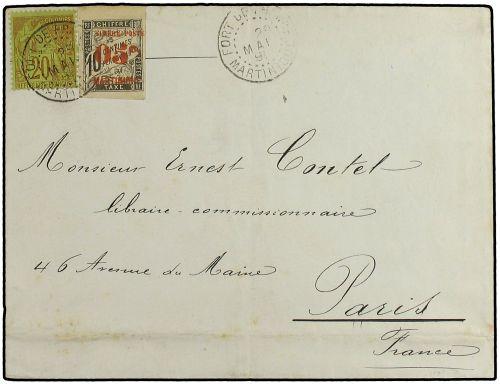 COLONIES
20
CHIFFRE
TIMBRE-POSTE
05c
10
MARTINIQUE
TAXE
MAI
MARTI
FORT DE
MAI
MARTINIQUE
Monsieur Ernest Contet
libraire-commissionnaire
46 Avenue du Maine
Paris
France